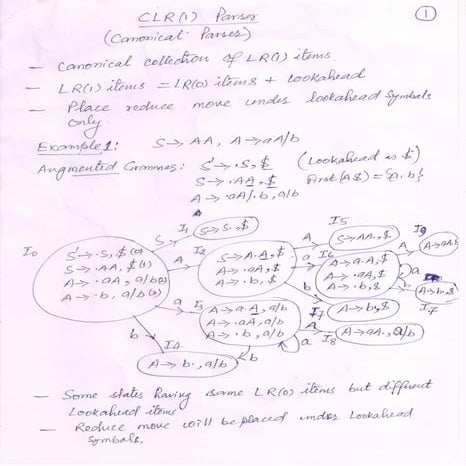 CLR(1) Parser
(Canonical Parser)
1
— Canonical collection of LR(1) items
— LR(1) items = LR(0) items + Lookahead
— Place reduce move under lookahead symbols
only.
Example 1: S→AA, A→aA/b
Augmented Grammar: S'→·S, $ (Lookahead is $)
S→·AA, $ First(A$) = {a, b}
A→·aA/·b, a/b
I0
S'→·S, $
S→·AA, $
A→·aA, a/b
A→·b, a/b
S
I1
S→S·, $
A
I2
S→A·A, $
A→·aA, $
A→·b, $
A
I5
S→AA·, $
a
I6
A→a·A, $
A→·aA, $
A→·b, $
A
I9
A→aA·
a
b
A→b·, $
I7
b
I7
A→b·, $
a
I3
A→a·A, a/b
A→·aA, a/b
A→·b, a/b
A
I8
A→aA·, a/b
a
b
b
I4
A→b·, a/b
— Some states having same LR(0) items but different
Lookahead items
— Reduce move will be placed under Lookahead
Symbols.